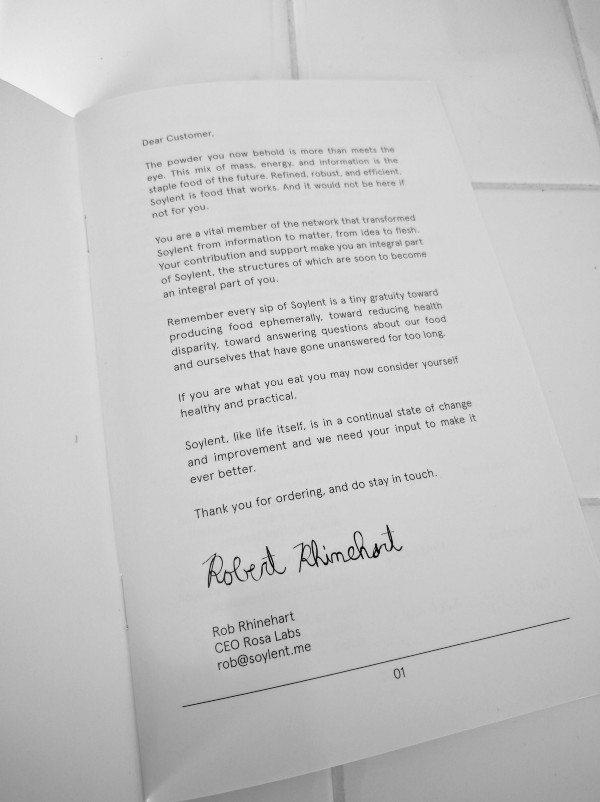 Dear Customer,
The powder you now behold is more than meets the
eye. This mix of mass, energy, and information is the
staple food of the future. Refined, robust, and efficient,
Soylent is food that works. And it would not be here if
not for you.
You are a vital member of the network that transformed
Soylent from information to matter, from idea to flesh.
Your contribution and support make you an integral part
of Soylent, the structures of which are soon to become
an integral part of you.
Remember every sip of Soylent is a tiny gratuity toward
producing food ephemerally, toward reducing health
disparity, toward answering questions about our food
and ourselves that have gone unanswered for too long.
If you are what you eat you may now consider yourself
healthy and practical.
Soylent, like life itself, is in a continual state of change
and improvement and we need your input to make it
ever better.
Thank you for ordering, and do stay in touch.
Robert Rhinehart
Rob Rhinehart
CEO Rosa Labs
rob@soylent.me
01